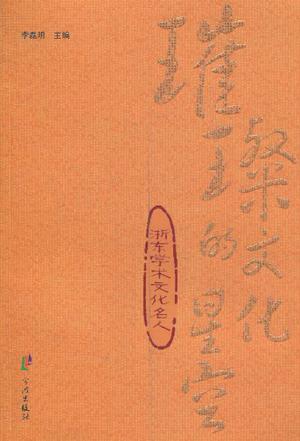 李磊明 主编
璀璨文化
的星空
浙东学术文化名人
宁波出版社